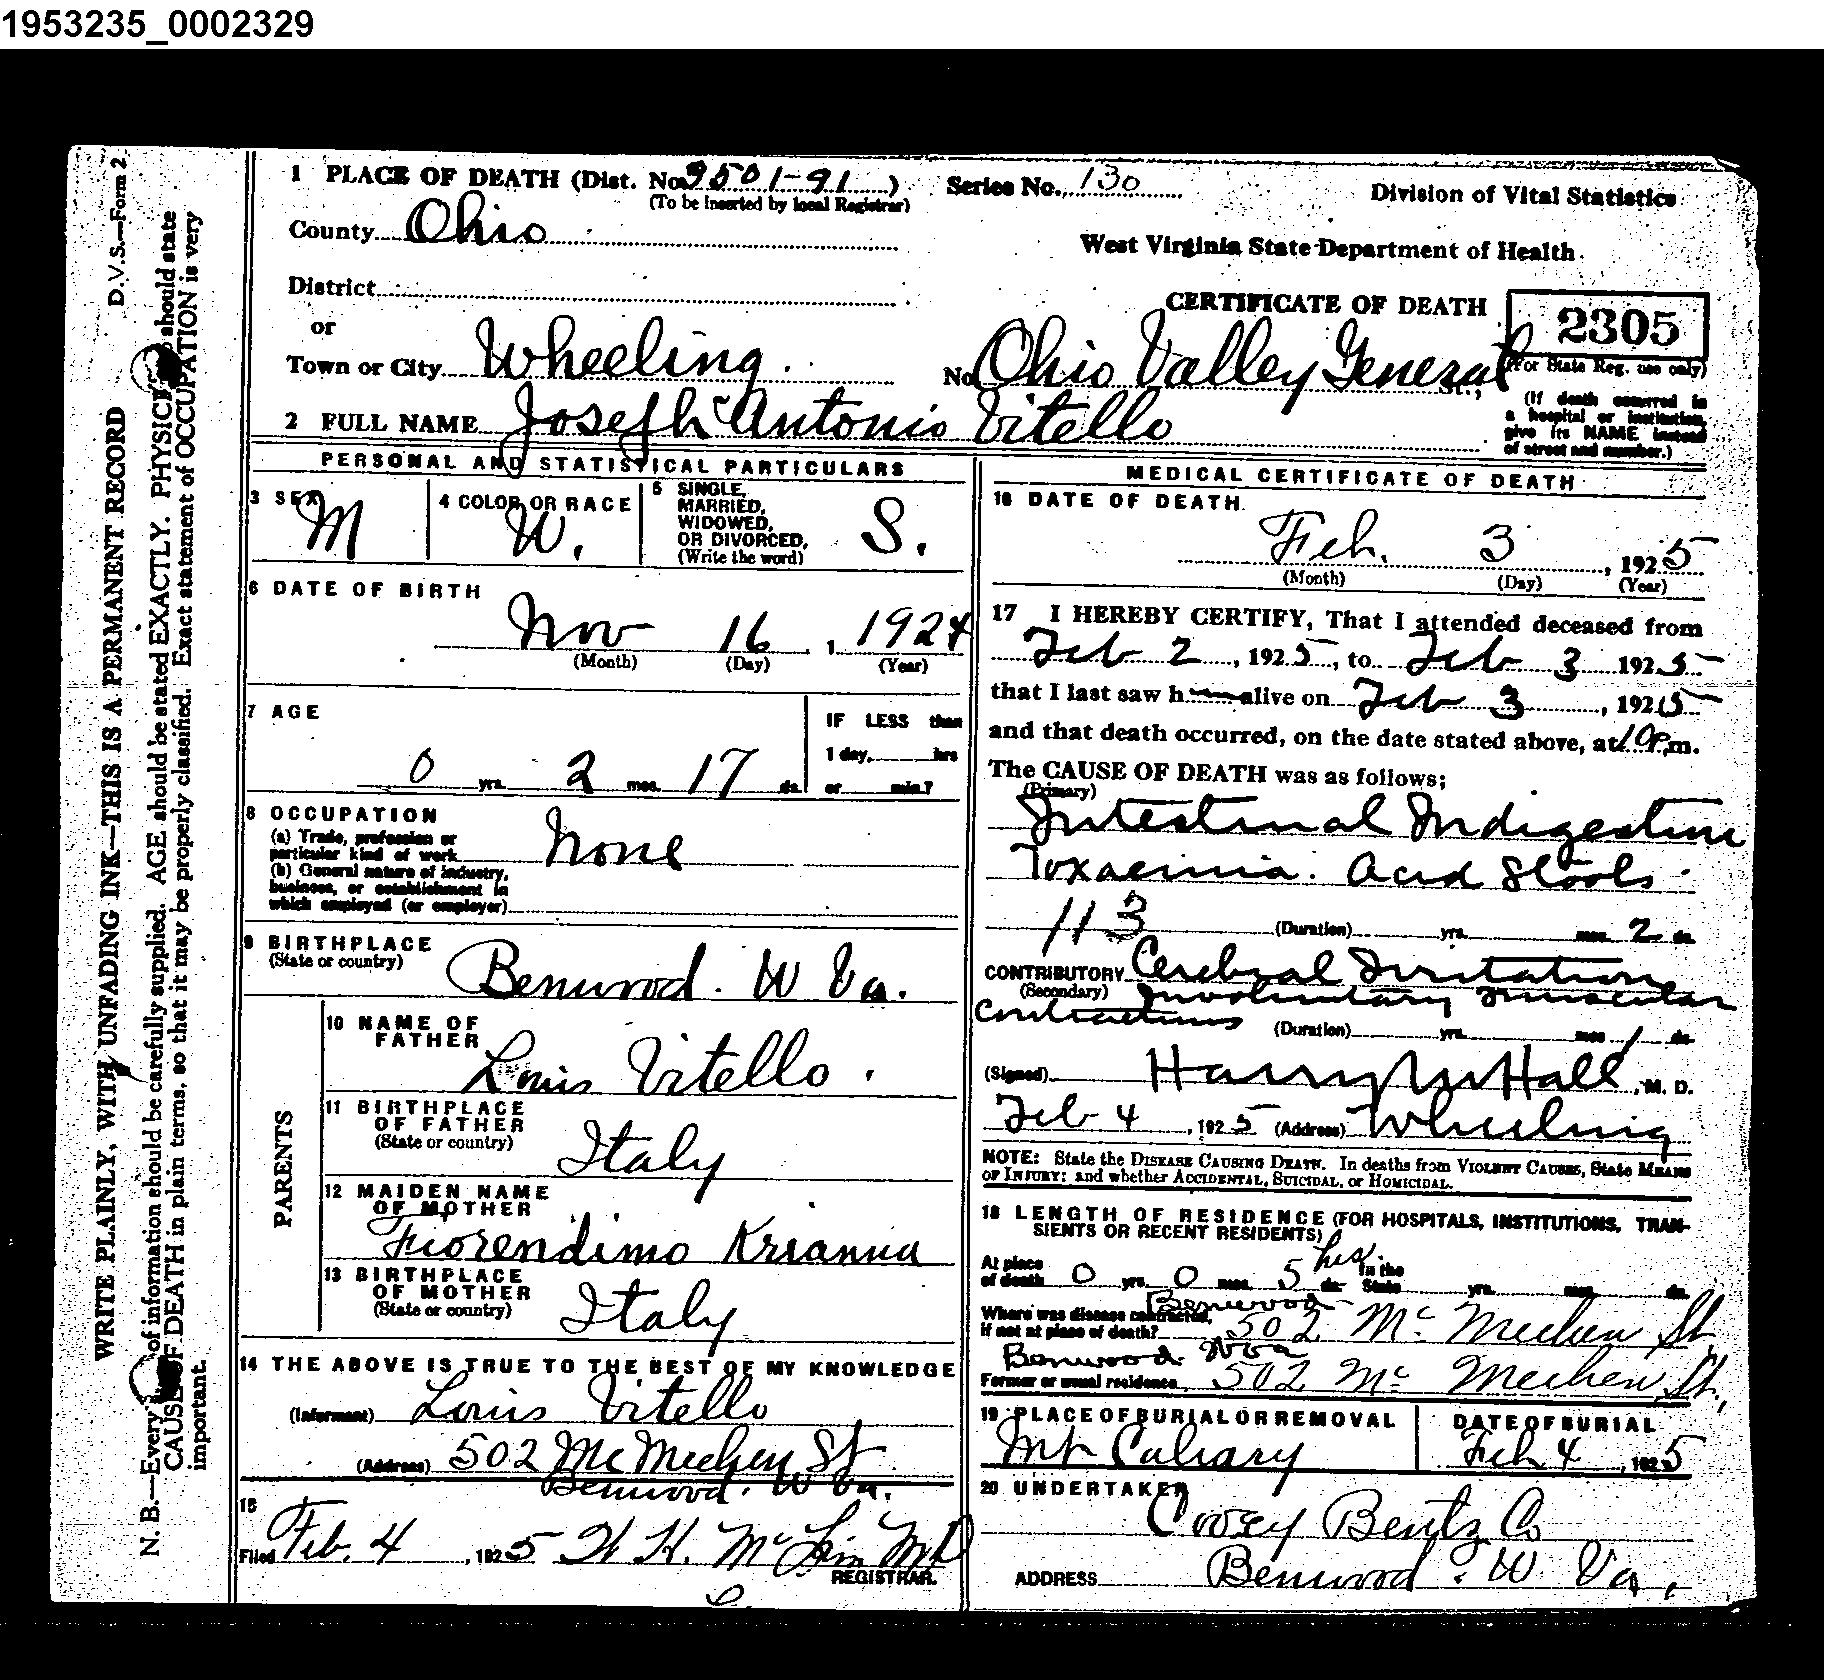 1953235_0002329
D.V.S.—Form 2
WRITE PLAINLY, WITH UNFADING INK—THIS IS A PERMANENT RECORD
N. B.—Every of information should be carefully supplied. AGE should be stated EXACTLY. PHYSIC should state
CAUSE OF DEATH in plain terms, so that it may be properly classified. Exact statement of OCCUPATION is very
important.
1 PLACE OF DEATH (Dist. No. 9501-91)
(To be inserted by local Registrar)
Series No. 130
Division of Vital Statistics
County Ohio
West Virginia State Department of Health
District
CERTIFICATE OF DEATH
2305
(For State Reg. use only)
or
Town or City Wheeling
No. Ohio Valley General St.,
(If death occurred in
a hospital or institution,
give its NAME instead
of street and number.)
2 FULL NAME Joseph Antonio Vitello
PERSONAL AND STATISTICAL PARTICULARS
3 SEX M
4 COLOR OR RACE W.
5 SINGLE,
MARRIED,
WIDOWED,
OR DIVORCED,
(Write the word)
S.
6 DATE OF BIRTH
Nov 16, 1924
(Month) (Day) (Year)
7 AGE
0 yrs. 2 mos. 17 ds.
IF LESS than
1 day, hrs
or min.?
8 OCCUPATION
(a) Trade, profession or
particular kind of work None
(b) General nature of industry,
business, or establishment in
which employed (or employer)
9 BIRTHPLACE
(State or country)
Benwood. W Va.
PARENTS
10 NAME OF
FATHER
Louis Vitello.
11 BIRTHPLACE
OF FATHER
(State or country)
Italy
12 MAIDEN NAME
OF MOTHER
Fiorendimo Krianna
13 BIRTHPLACE
OF MOTHER
(State or country)
Italy
14 THE ABOVE IS TRUE TO THE BEST OF MY KNOWLEDGE
(Informant) Louis Vitello
(Address) 502 McMechen St
Benwood. W Va.
15
Filed Feb. 4, 1925
REGISTRAR.
MEDICAL CERTIFICATE OF DEATH
16 DATE OF DEATH
Feb. 3, 1925
(Month) (Day) (Year)
17 I HEREBY CERTIFY, That I attended deceased from
Feb 2, 1925, to Feb 3 1925
that I last saw h alive on Feb 3, 1925
and that death occurred, on the date stated above, at 10P.m.
The CAUSE OF DEATH was as follows;
(Primary)
Intestinal Indigestion
Toxaemia. Acid Stools.
113
(Duration) yrs. mos. 2 ds.
CONTRIBUTORY Cerebral Irritation
(Secondary) Involuntary muscular
contractions (Duration) yrs. mos 1 ds.
(Signed) Harry M Hall, M. D.
Feb 4, 1925 (Address) Wheeling
NOTE: State the DISEASE CAUSING DEATH. In deaths from VIOLENT CAUSES, State MEANS
OF INJURY; and whether ACCIDENTAL, SUICIDAL, or HOMICIDAL.
18 LENGTH OF RESIDENCE (FOR HOSPITALS, INSTITUTIONS, TRAN-
SIENTS OR RECENT RESIDENTS)
At place
of death 0 yrs. 0 mos. 5 ds. hrs. In the
State yrs. mos. ds.
Where was disease contracted, Benwood
if not at place of death? 502 Mc Mechen St.
Benwood W Va
Former or usual residence 502 Mc Mechen St.,
19 PLACE OF BURIAL OR REMOVAL
Mt Calvary
DATE OF BURIAL
Feb 4, 1925
20 UNDERTAKER
Bentz Co
ADDRESS Benwood. W Va.